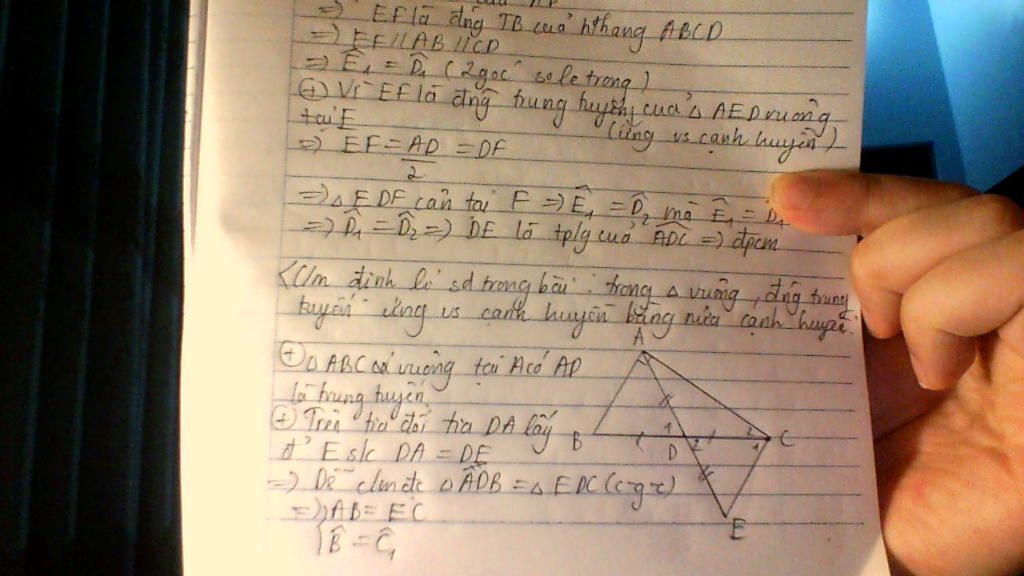 => EF là đng TB cuả hthang ABCD
=> EF // AB // CD
=> Ê₁ = D̂₁ (2 goc so le trong)
⊕ Vì EF là đng trung tuyến cuả △ AED vuông
tại E (ứng vs cạnh huyền)
=> EF = AD/2 = DF
=> △ EDF cân tại F => Ê₁ = D̂₂ mà Ê₁ = D̂₁
=> D̂₁ = D̂₂ => DE là tplg cuả ADC => đpcm
<C/m định lí sd trong bài : trong △ vuông, đng trung
tuyến ứng vs cạnh huyền bằng nửa cạnh huyền.
⊕ △ ABC vuông tại A có AD
là trung tuyến
⊕ Trên tia đối tia DA lấy
đ' E s/c DA = DE
=> Dễ c/m đc △ ADB = △ EDC (c-g-c)
=> AB = EC
B̂ = Ĉ₁
A
B
1
D
2
2
1
C
E